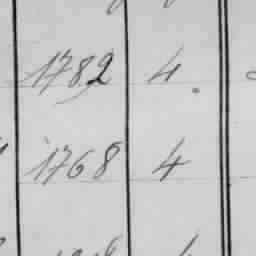 1782 4.
1768 4